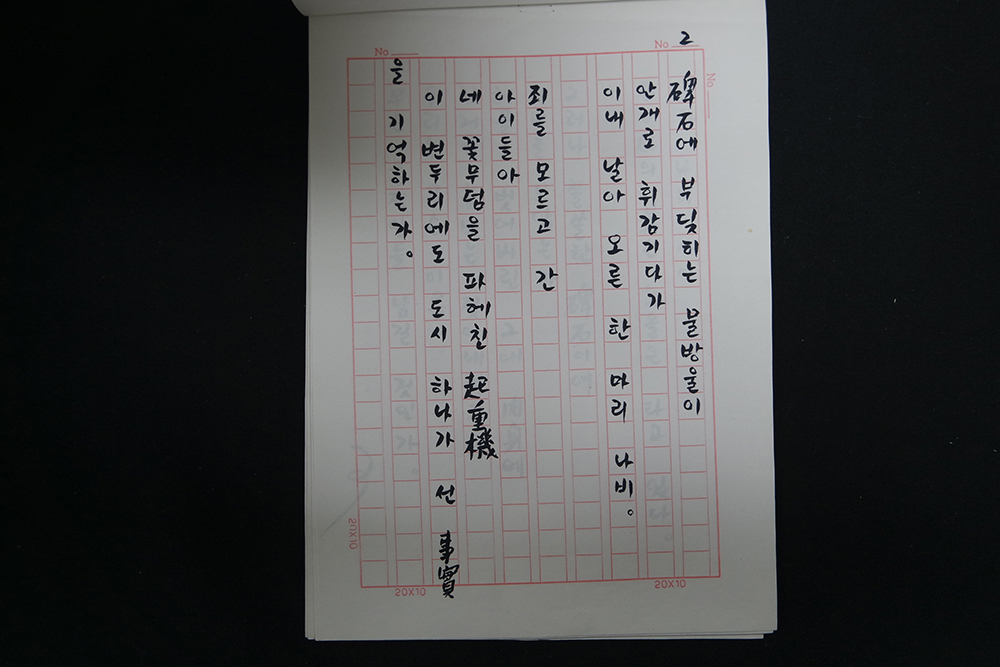 No 2
碑石에 부딪치는 물방울이
안개로 휘감기다가
이내 날아 오른 한 마리 나비。
죄를 모르고 간
아이들아
네 꽃무덤을 파헤친 起重機
이 변두리에도 도시 하나가 선 事實
을 기억하는가。
No
No
20X10
20X10
20X10